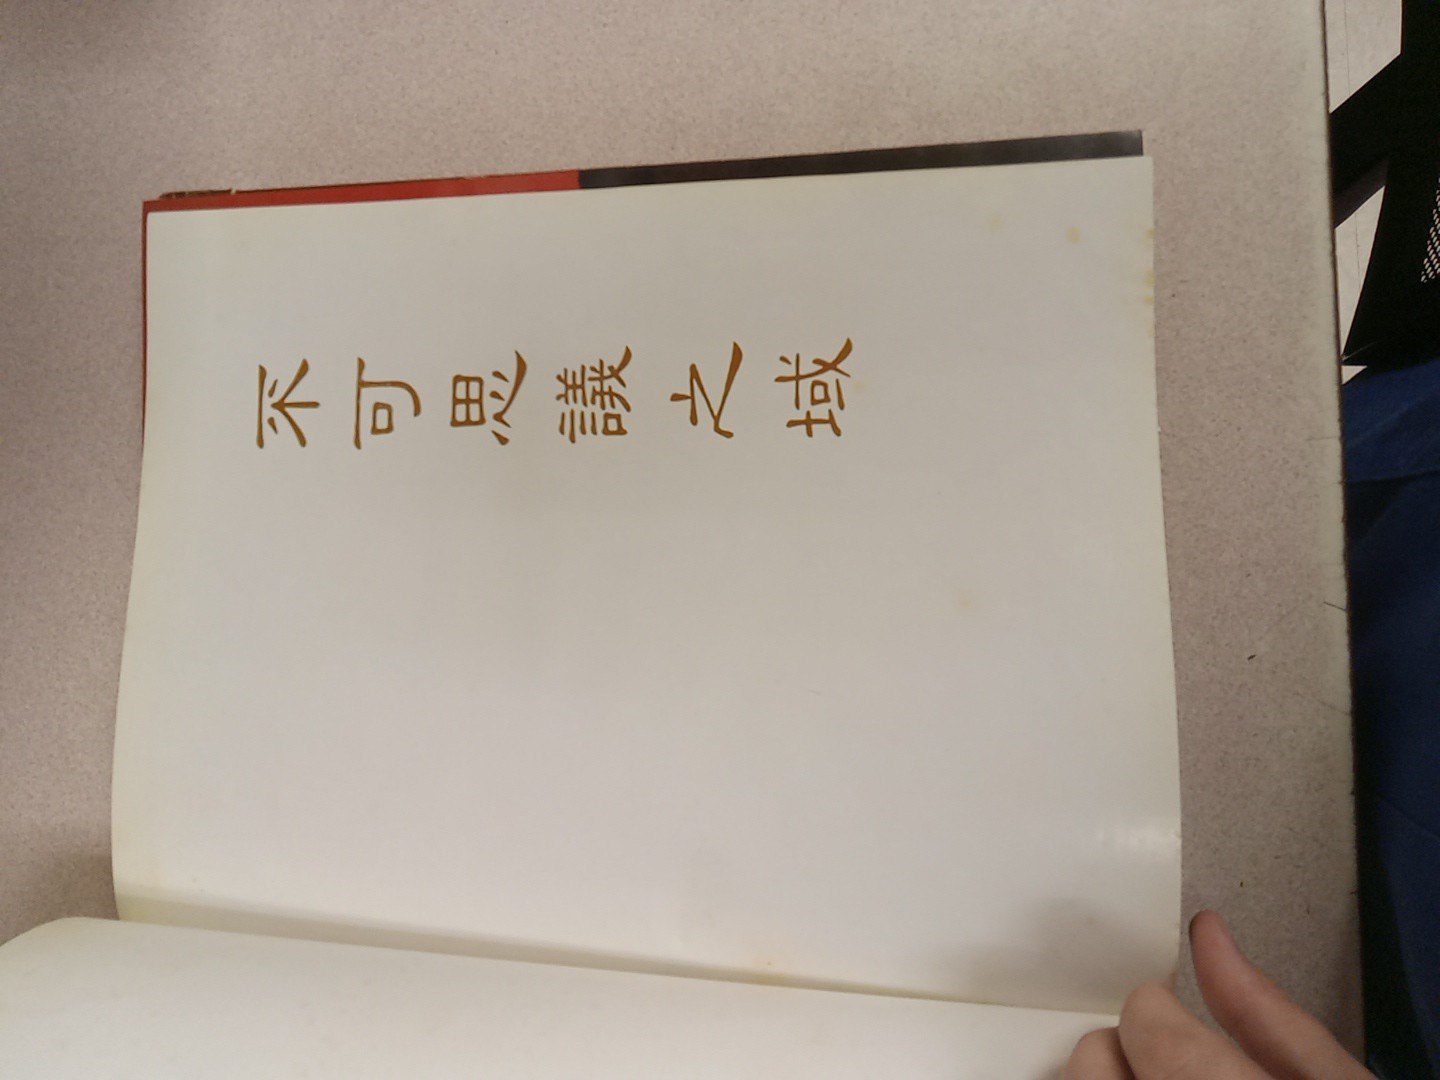 不可思議之域